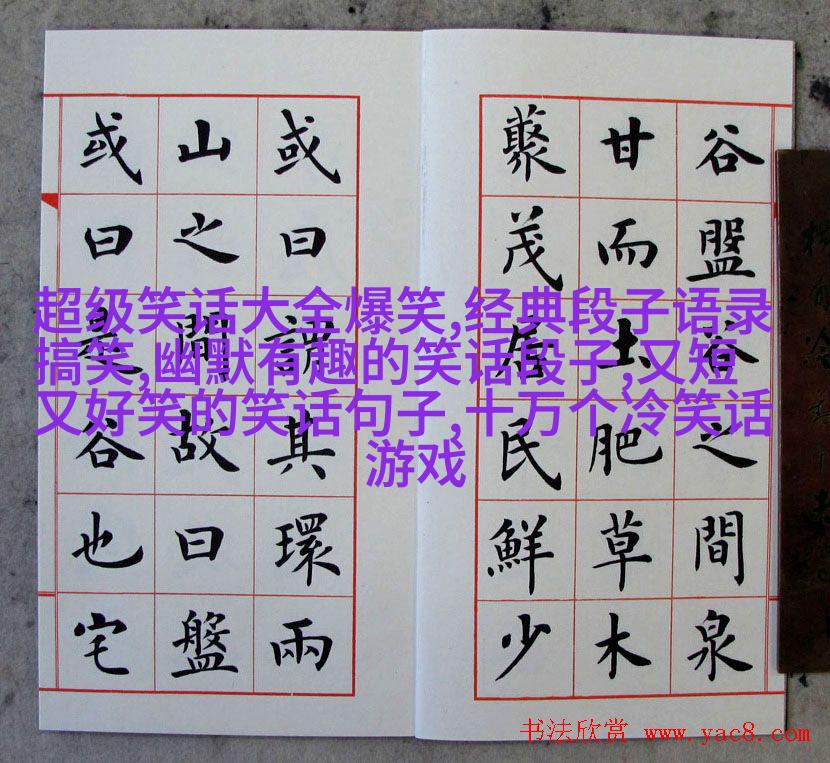 谷盤谷之間泉
甘而土肥草木
藂茂居民鮮少
或曰謂其環兩
山之間故曰盤
或曰是谷也宅
超级笑话大全爆笑,经典段子语录
搞笑,幽默有趣的笑话段子,又短
又好笑的笑话句子,十万个冷笑话
游戏
书法欣赏 www.yac8.com